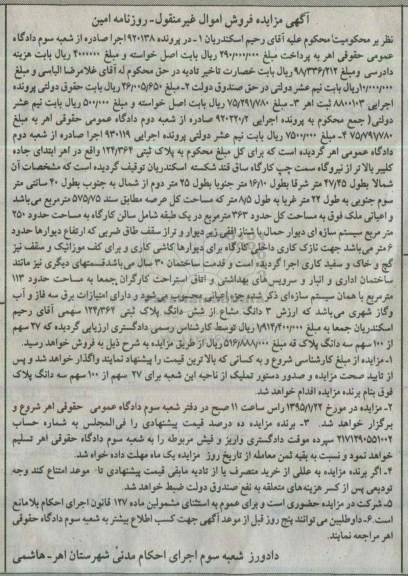 آگهی مزایده فروش اموال غیرمنقول- روزنامه امین
نظر بر محکومیت محکوم علیه آقای رحیم اسکندریان ۱- در پرونده ۹۲۰۱۳۸ اجرا صادره از شعبه سوم دادگاه
عمومی حقوقی اهر به پرداخت مبلغ ۲۹۰/۰۰۰/۰۰۰ ریال بابت اصل خواسته و مبلغ ۴۰۰۰۰۰۰ ریال بابت هزینه
دادرسی ومبلغ ۹۸/۳۳۶/۲۱۲ ریال بابت خصارت تاخیر تادیه در حق محکوم له آقای غلامرضا الیاسی و مبلغ
۱۰/۰۰۰/۰۰۰ریال بابت نیم عشر دولتی در حق صندوق دولت ۲- مبلغ ۲۶/۰۰۵/۶۵۰ ریال بابت حقوق دولتی پرونده
اجرایی ۸۸۰۰۱۰۳ ثبت اهر ۳- مبلغ ۷۵/۲۹۱/۷۸۰ ریال بابت اصل خواسته و مبلغ ۵۰۰/۰۰۰ ریال بابت نیم عشر
دولتی( جمع محکوم به پرونده اجرایی ۹۲۰۲۲۰/۲ صادره از شعبه دوم دادگاه عمومی حقوقی اهر به مبلغ
۷۵/۷۹۱/۷۸۰ ۴- مبلغ ۷۵۰۰/۰۰۰ ریال بابت نیم عشر دولتی پرونده اجرایی ۹۳۰۱۱۹ اجرا صادره از شعبه دوم
دادگاه عمومی اهر گردیده است که برای کل مبلغ محکوم به پلاک ثبتی ۱۲۴/۳۶۴ واقع در اهر ابتدای جاده
کلیبر بالاتر از نیروگاه سمت چپ کارگاه ساق قند شکسته اسکندریان توقیف گردیده است که مشخصات آن
شمالا بطول ۴۷/۴۵ متر شرقا بطول ۱۶/۱۰ متر جنوبا بطول ۲۵ متر دوم از شمال به جنوب بطول ۴۰ سانتی متر
سوم جنوبی به طول ۲۲ متر غربا به طول ۸/۵ متر که مساحت کل عرصه مطابق سند ۵۷۵/۷۵ مترمربع می باشد
و اعیانی ملک فوق به مساحت کل حدود ۳۶۳ مترمربع در یک طبقه شامل سالن کارگاه به مساحت حدود ۲۵۰
متر مربع سیستم سازه ای دیوار حمال با شناژ افقی زیر دیوار و تراز سقف طاق ضربی که ارتفاع دیوارها حدود
۶ متر می باشد جهت نازک کاری داخلی کارگاه برای دیوارها کاشی کاری و برای کف موزائیک و سقف نیز
گچ و خاک و سفید کاری اجرا گردیده است و قدمت ساختمان ۳۰ سال می باشدقسمتهای دیگری نیز مانند
ساختمان اداری و انبار و سرویس های بهداشتی و اتاق استراحت کارگران جمعا به مساحت حدود ۱۱۳
مترمربع با همان سیستم سازه ای ذکر شده جزء اعیانی محسوب می شود و دارای امتیازات برق سه فاز و آب
وگاز شهری می باشد که ارزش ۳ دانگ مشاع از شش دانگ پلاک ثبتی ۱۲۴/۳۶۴ سهمی آقای رحیم
اسکندریان جمعا به مبلغ ۱/۹۱۴/۴۰۰/۰۰۰ ریال توسط کارشناس رسمی دادگستری ارزیابی گردیده که ۲۷ سهم
از ۱۰۰ سهم سه دانگ پلاک قه مبلغ ۵۱۶/۸۸۸/۰۰۰ ریال از طریق مزایده به شرح ذیل به فروش خواهد رسید.
۱- مزایده از مبلغ کارشناسی شروع و به کسانی که بالاترین قیمت را پیشنهاد نمایند واگذار خواهد شد و پس
از تایید صحت مزایده و صدور دستور تملیک از ناحیه این شعبه برای ۲۷ سهم از ۱۰۰ سهم سه دانگ پلاک
فوق بنام برنده مزایده اقدام خواهد شد.
۲- مزایده در مورخ ۱۳۹۵/۱/۲۲ راس ساعت ۱۱ صبح در دفتر شعبه سوم دادگاه عمومی حقوقی اهر شروع و
برگزار خواهد شد. ۳- برنده مزایده ده درصد قیمت پیشنهادی را فی المجلس به شماره حساب
۲۱۷۱۲۹۰۵۵۱۰۰۲ سپرده موقت دادگستری واریز و فیش مربوطه را به شعبه سوم دادگاه حقوقی اهر تسلیم
خواهد نمود و نسبت به بقیه ثمن معامله از تاریخ روز مزایده یک ماه مهلت داده خواه شد.
۴- اگر برنده مزایده به عللی از خرید متصرف یا از تادیه مابقی قیمت پیشنهادی تا موعد امتناع کند وجه
تودیعی پس از کسر هزینه های متعلقه به نفع صندوق دولت ضبط خواهد شد.
۵- شرکت در مزایده حضوری است و برای عموم به استثنای مشمولین ماده ۱۲۷ قانون اجرای احکام بلامانع
است ۶- داوطلبین می توانند پنج روز قبل از موعد آگهی جهت کسب اطلاع بیشتر به شعبه سوم دادگاه حقوقی
اهر مراجعه نمایند.
دادورز شعبه سوم اجرای احکام مدنی شهرستان اهر- هاشمی